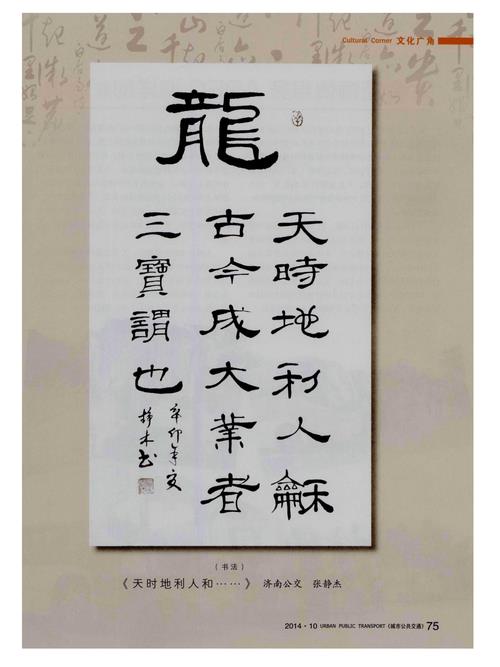 Cultural Corner 文化广角
龍
天時地利人龢
古今成大業者
三寶謂也
辛卯年
书
(书法)
《天时地利人和……》 济南公交 张静杰
2014·10 URBAN PUBLIC TRANSPORT《城市公共交通》75